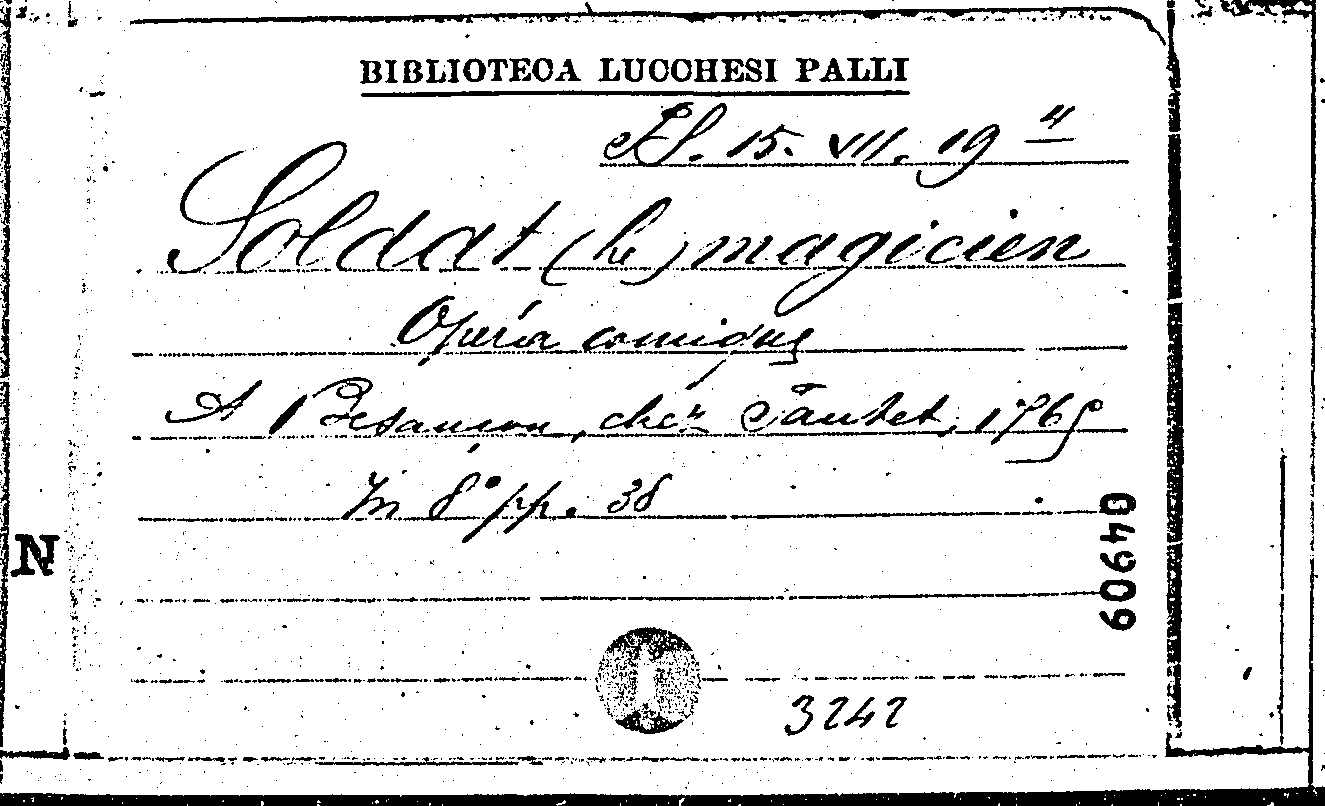 BIBLIOTECA LUCCHESI PALLI
15. VII. 19 4
Soldat (le) magicien
Opéra comique
A Besançon, chez Fautet, 1765
In 8° pp. 38
N
04909
3242